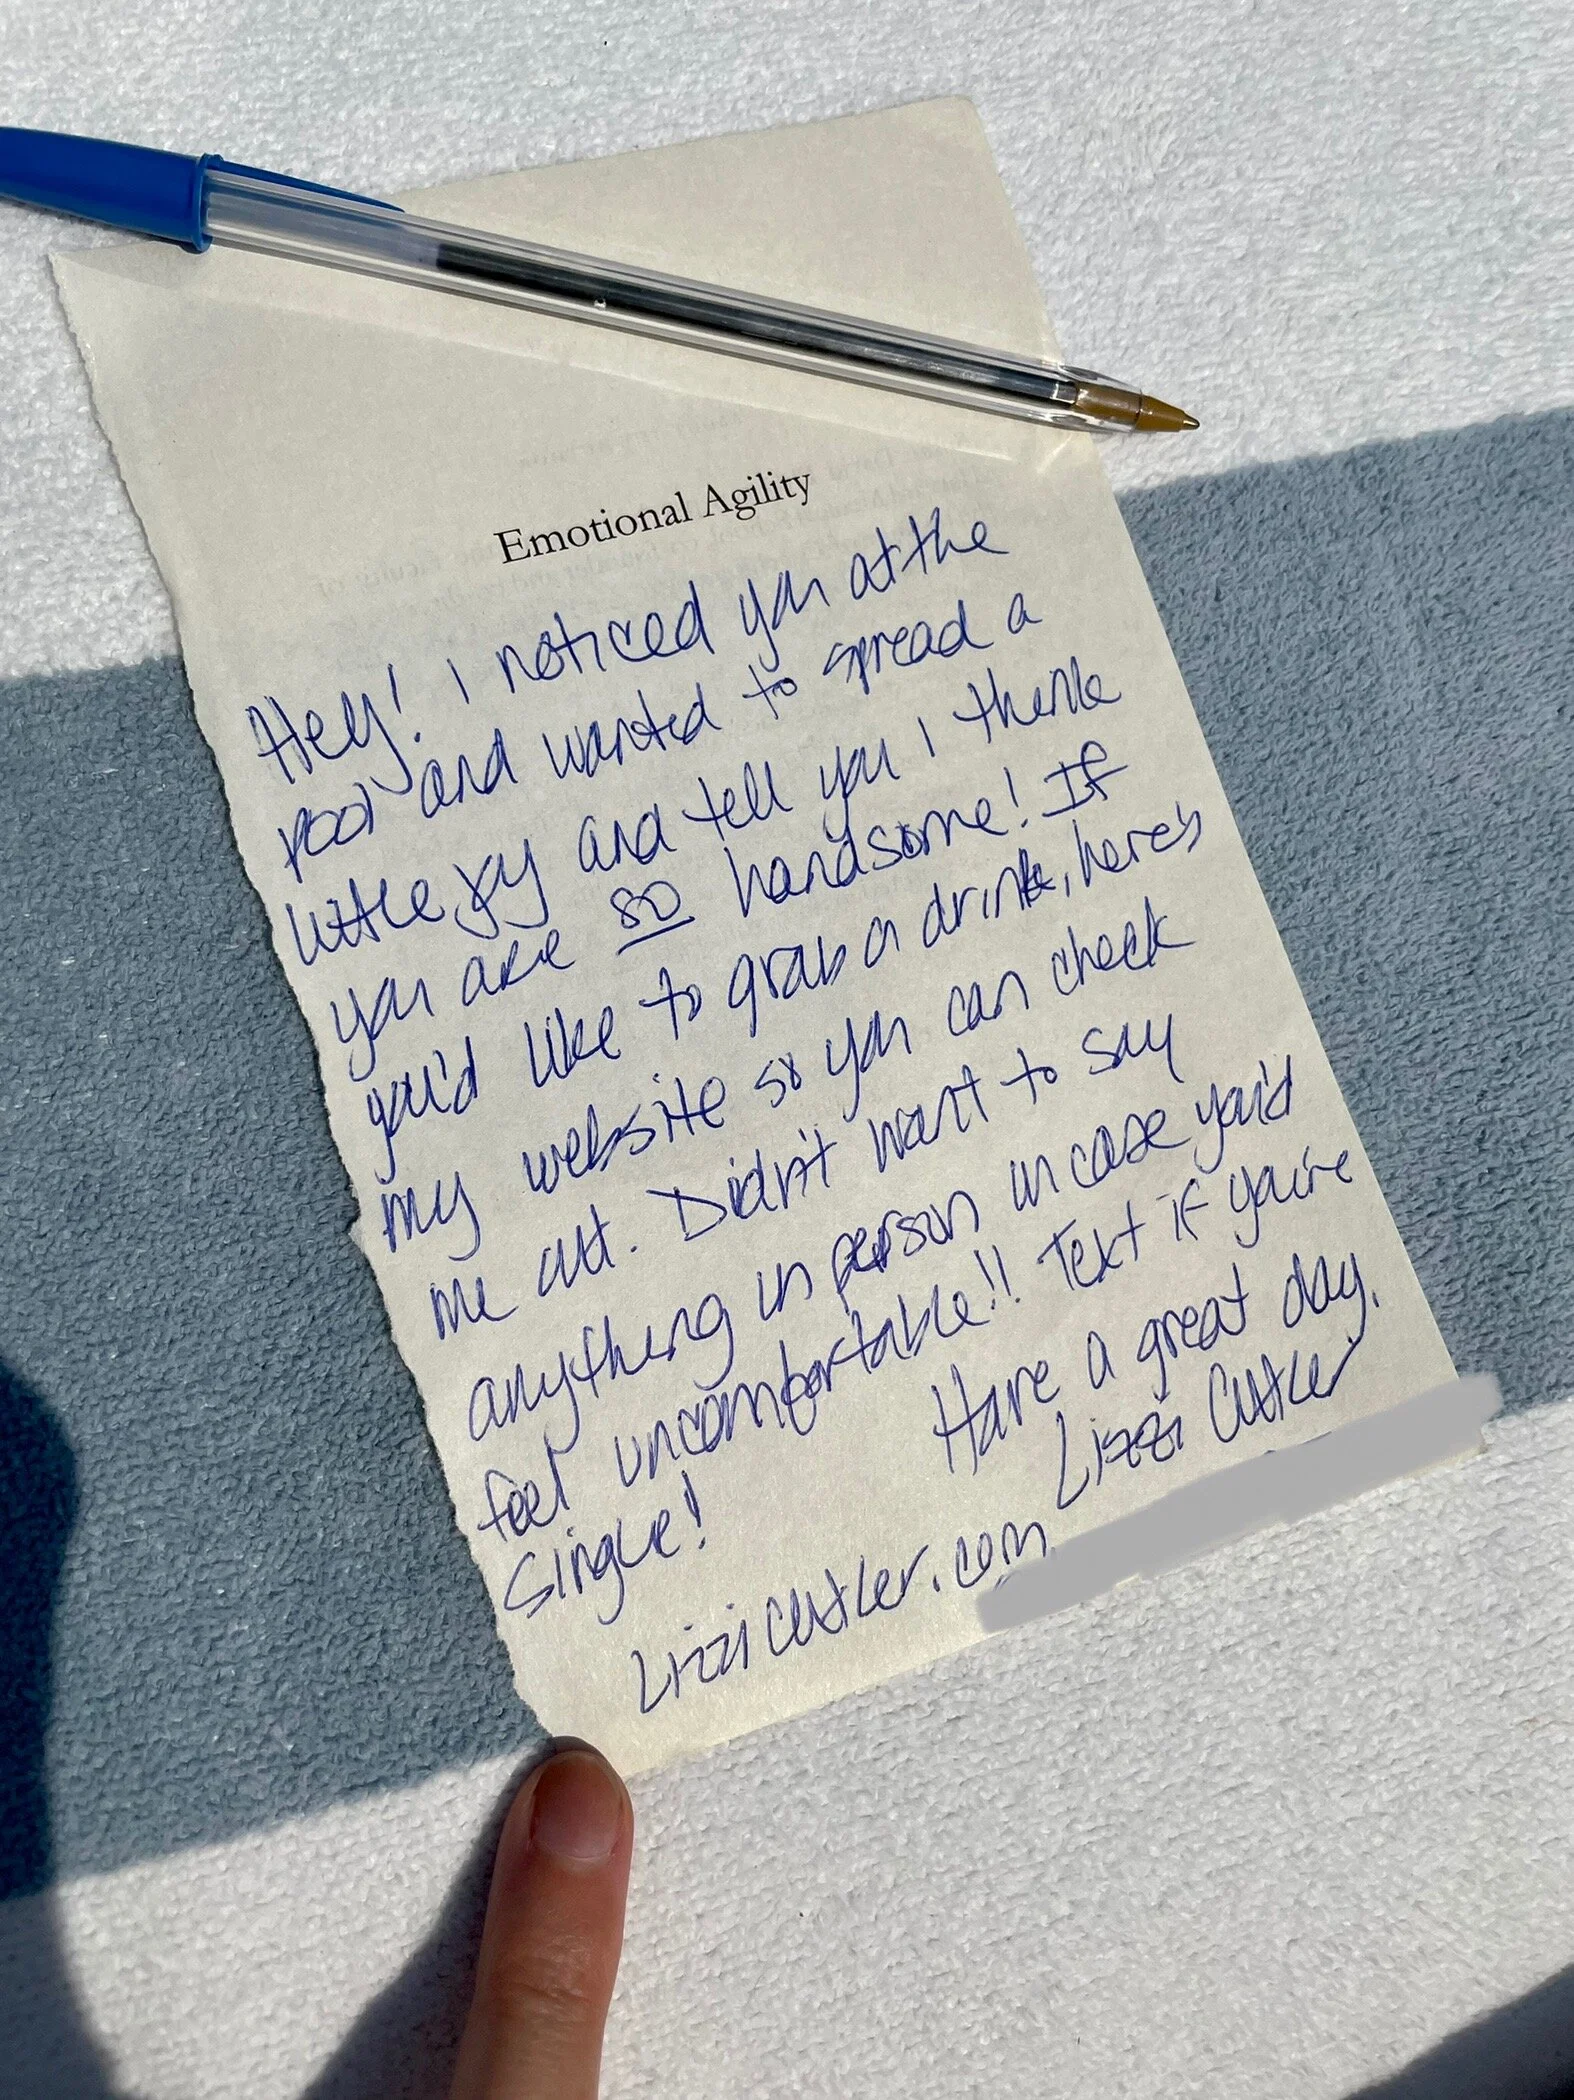 Emotional Agility
Hey! I noticed you at the
pool and wanted to spread a
little joy and tell you I think
you are so handsome! If
you'd like to grab a drink, here's
my website so you can check
me out. Didn't want to say
anything in person in case you'd
feel uncomfortable!! Text if you're
single!
Have a great day,
Lizzi Cutler
Lizzicutler.com